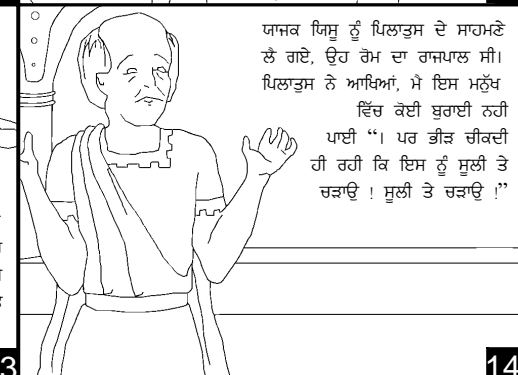 ਯਾਜਕ ਯਿਸੂ ਨੂੰ ਪਿਲਾਤੁਸ ਦੇ ਸਾਹਮਣੇ
ਲੈ ਗਏ, ਉਹ ਰੋਮ ਦਾ ਰਾਜਪਾਲ ਸੀ।
ਪਿਲਾਤੁਸ ਨੇ ਆਖਿਆਂ, ਮੈ ਇਸ ਮਨੁੱਖ
ਵਿੱਚ ਕੋਈ ਬੁਰਾਈ ਨਹੀ
ਪਾਈ “। ਪਰ ਭੀੜ ਚੀਕਦੀ
ਹੀ ਰਹੀ ਕਿ ਇਸ ਨੂੰ ਸੂਲੀ ਤੇ
ਚੜਾਉ ! ਸੂਲੀ ਤੇ ਚੜਾਉ !”
3
14